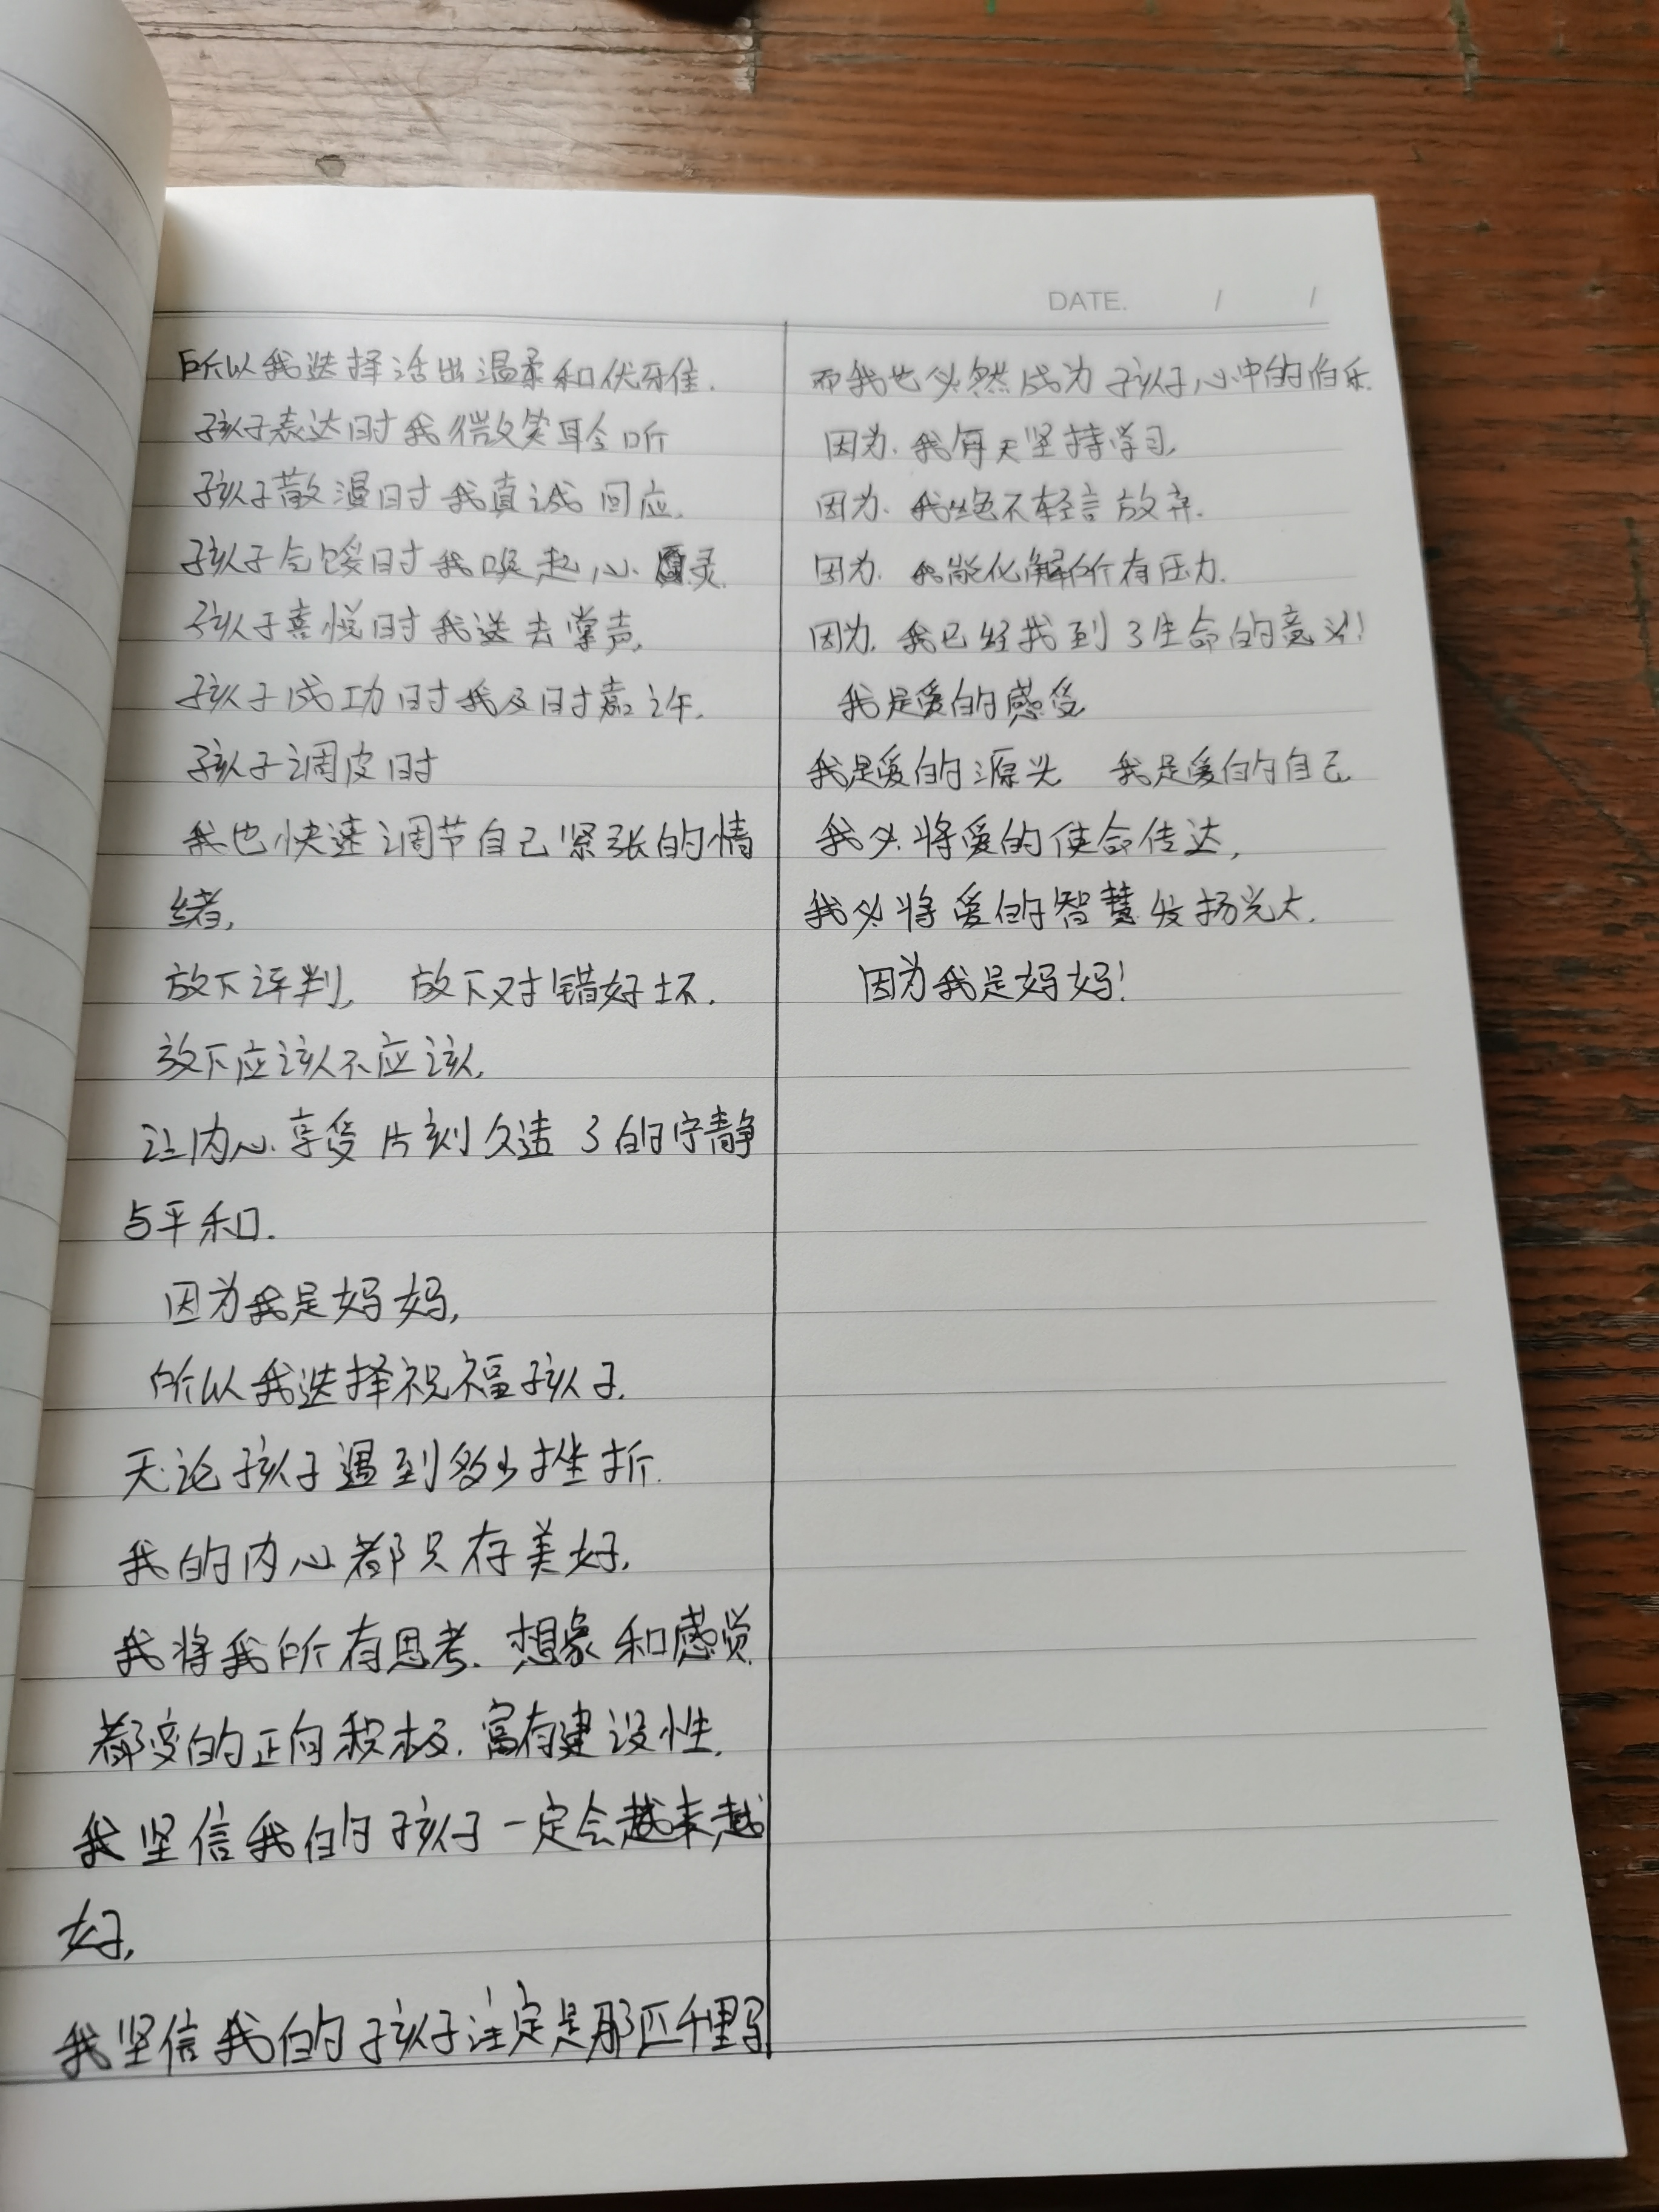 DATE. / /
所以我选择活出温柔和优雅.
孩子表达时我微笑聆听
孩子散漫时我真诚回应.
孩子气馁时我唤起心灵.
孩子喜悦时我送去掌声.
孩子成功时我及时嘉许.
孩子调皮时
我也快速调节自己紧张的情
绪,
放下评判, 放下对错好坏.
放下应该不应该,
让内心享受片刻久违了的宁静
与平和.
因为我是妈妈,
所以我选择祝福孩子.
无论孩子遇到多少挫折.
我的内心都只存美好,
我将我所有思考.想象和感觉
都变的正向积极.富有建设性.
我坚信我的孩子一定会越来越
好,
我坚信我的孩子注定是那匹千里马
而我也必然成为孩子心中的伯乐.
因为.我每天坚持学习,
因为.我绝不轻言放弃.
因为.我能化解所有压力.
因为.我已经找到了生命的意义!
我是爱的感受
我是爱的源头 我是爱的自己
我必将爱的使命传达,
我必将爱的智慧发扬光大.
因为我是妈妈!